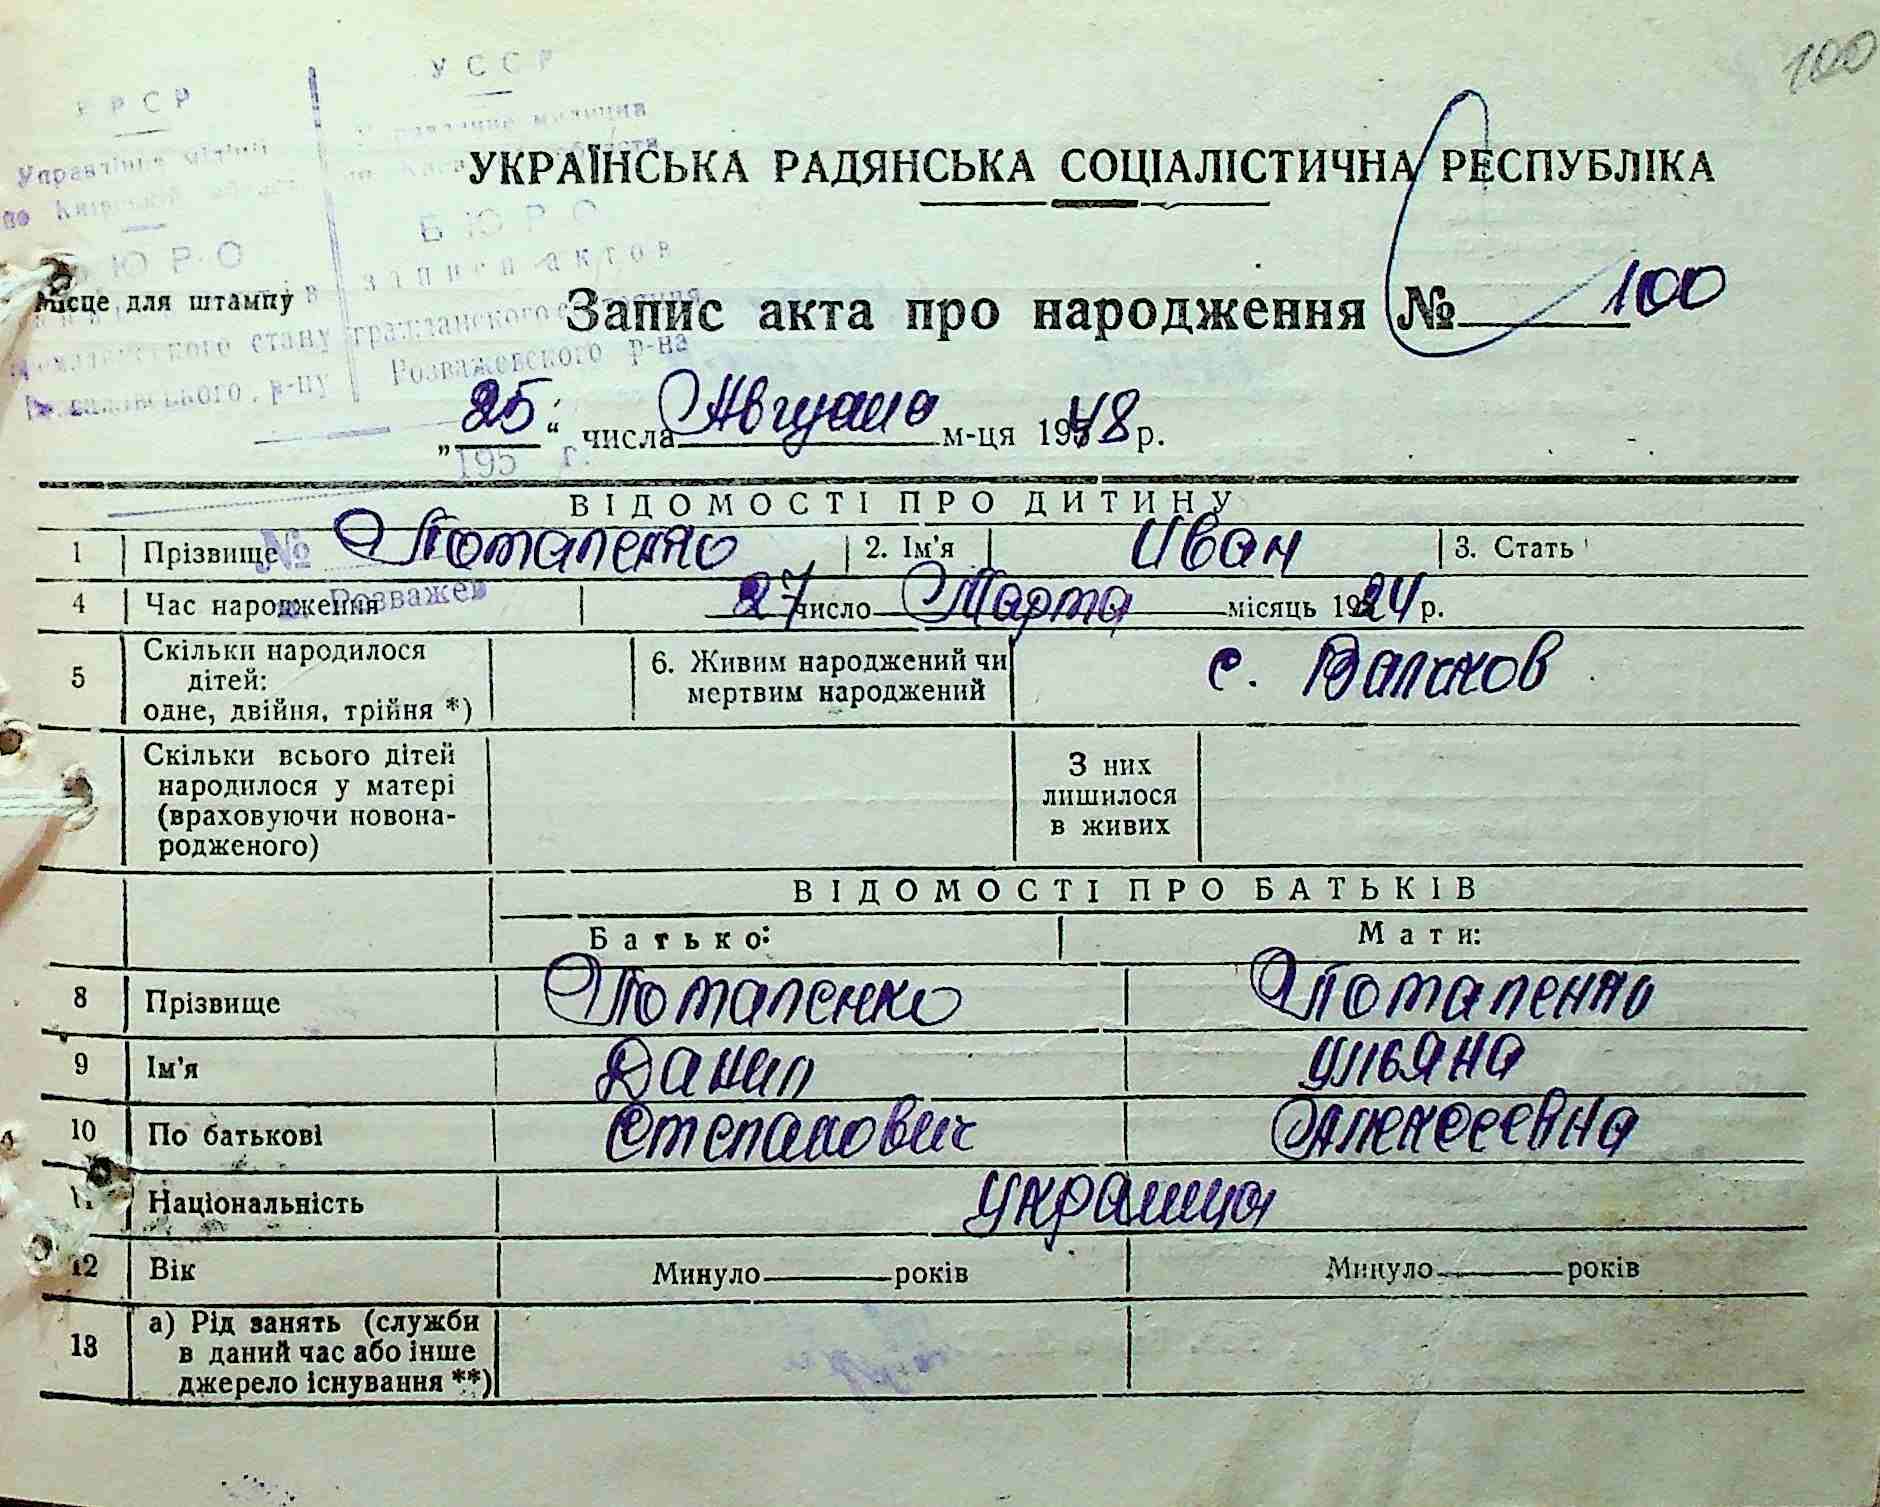 100
УССР
УРСР
Управління міліції
по Київській
БЮРО
БЮРО
записи актов
гражданского
Розважевского р-на
стану
р-ну
195 г.
№
Розважев
УКРАЇНСЬКА РАДЯНСЬКА СОЦІАЛІСТИЧНА РЕСПУБЛІКА
Місце для штампу
Запис акта про народження № 100
„25“ числа Августа м-ця 1948 р.
ВІДОМОСТІ ПРО ДИТИНУ
1 Прізвище Потапенко 2. Ім'я Иван 3. Стать
4 Час народження 27 число Марта місяць 1924 р.
5 Скільки народилося дітей: одне, двійня, трійня *) 6. Живим народжений чи мертвим народжений с.
Скільки всього дітей народилося у матері (враховуючи новонародженого) З них лишилося в живих
ВІДОМОСТІ ПРО БАТЬКІВ
Батько: Мати:
8 Прізвище Потапенко Потапенко
9 Ім'я Данил Ульяна
10 По батькові Степанович Алексеевна
11 Національність украинцы
12 Вік Минуло років Минуло років
13 а) Рід занять (служби в даний час або інше джерело існування **)